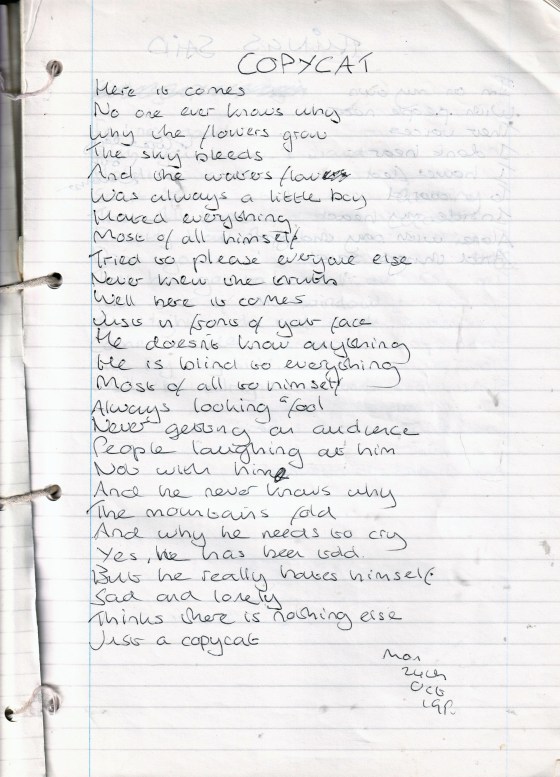 COPYCAT
Here it comes
No one ever knows why
Why the flowers grow
The sky bleeds
And the flow
Was always a little boy
Hated everything
Most of all himself
Tried to please everyone else
Never knew the truth
Well here it comes
Just in front of your face
He doesn't know anything
He is blind to everything
Most of all to himself
Always looking a fool
Never getting an audience
People laughing at him
Not with him
And he never knows why
The mountains fold
And why he needs to cry
Yes, he has been told
But he really hates himself
Sad and lonely
Thinks there is nothing else
Just a copycat
Mon
24th
Oct